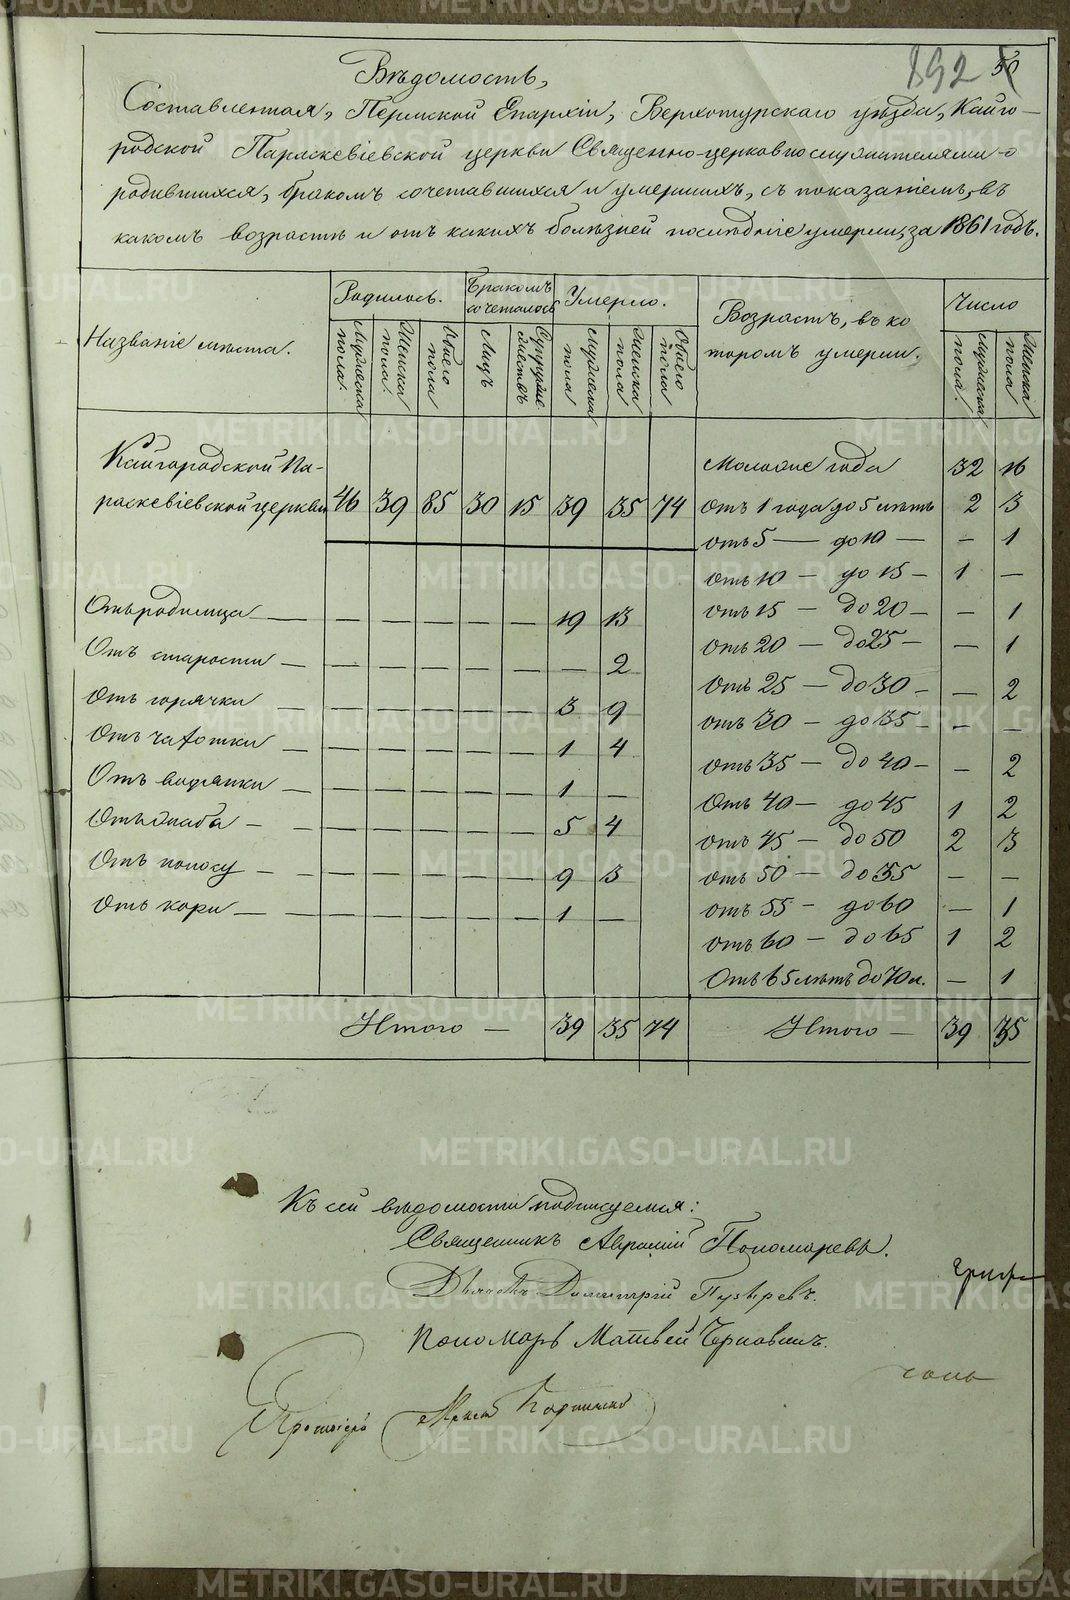 892 50
Вѣдомость,
Составленная, Пермской Епархіи, Верхотурскаго уѣзда, Кайго-
родской Параскевіевской церкви Священно-церковнослужителями о
родившихся, бракомъ сочетавшихся и умершихъ, съ показаніемъ, въ
какомъ возрастѣ и отъ какихъ болѣзней послѣдніе умерли, за 1861 годъ.
Названіе мѣста. Родилось. Бракомъ сочеталось Умерло. Возрастъ, въ ко
торомъ умерли. Число
Мужеска пола. Женска пола. Обоего пола Лицъ Супружествъ Мужеска пола Женска пола Обоего пола Мужеска пола. Женска пола
Кайгородской Па- Моложе года 32 16
раскевіевской церкви 46 39 85 30 15 39 35 74 отъ 1 года до 5 лѣтъ 2 3
отъ 5 — до 10 — — 1
отъ 10 — до 15 — 1 —
Отъ родимца — — — — — — 19 13 отъ 15 — до 20 — — 1
Отъ старости — — — — — — — 2 отъ 20 — до 25 — — 1
Отъ горячки — — — — — — 3 9 отъ 25 — до 30 — — 2
Отъ чахотки — — — — — — 1 4 отъ 30 — до 35 — — —
отъ 35 — до 40 — — 2
Отъ водянки — — — — — — 1 — отъ 40 — до 45 1 2
— — — — — — 5 4 отъ 45 — до 50 2 3
Отъ поносу — — — — — — 9 3 отъ 50 — до 55 — —
Отъ кори — — — — — — 1 — отъ 55 — до 60 — 1
отъ 60 — до 65 1 2
отъ 65 лѣтъ до 70 л. — 1
Итого — 39 35 74 Итого — 39 35
Къ сей вѣдомости подписуемся:
Священникъ Аврамій Пономаревъ.
Дьячекъ Димитрій Пузыревъ.
Пономарь Матвей
Протоіерей
METRIKI.GASO-URAL.RU